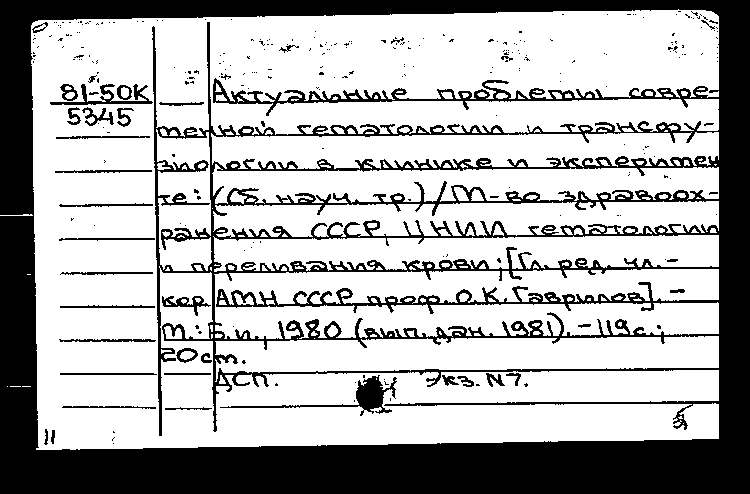 81-50К
5345
Актуальные проблемы совре-
менной гематологии и трансфу-
зиологии в клинике и эксперимен
те: (Сб. науч. тр.)/М-во здравоох-
ранения СССР, ЦНИИ гематологии
и переливания крови; [Гл. ред. чл.-
кор. АМН СССР, проф. О.К. Гаврилов]. -
М.: Б.и., 1980 (вып. дан. 1981). - 119с.;
20 см.
ДСП. Экз. N7.
11